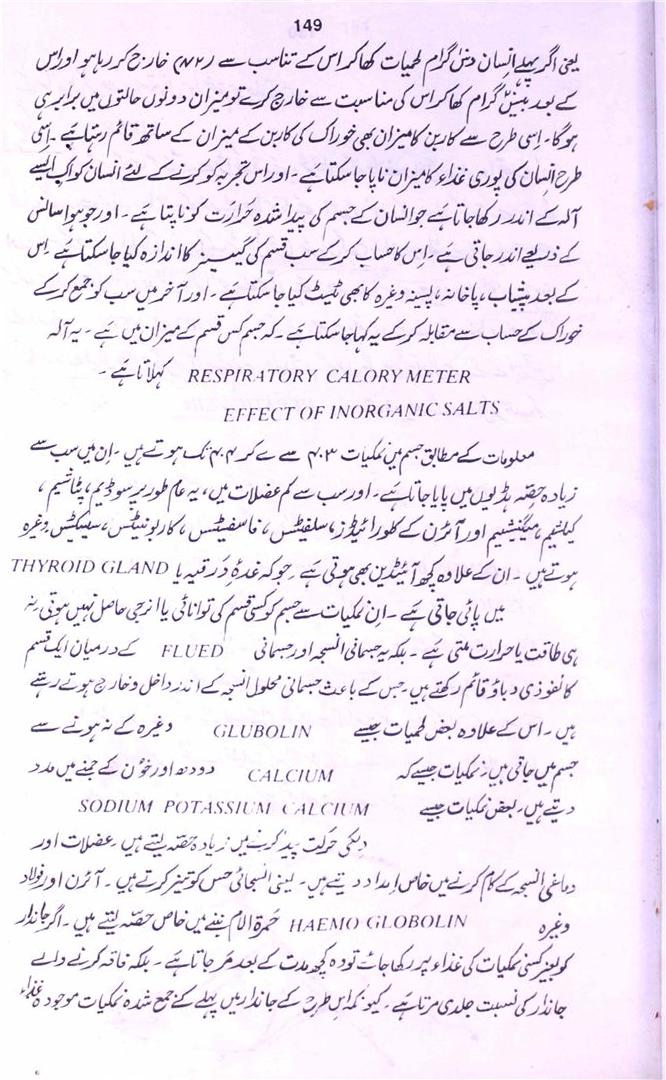 149
یعنی اگر پہلے انسان دس گرام لحمیات کھا کر اس کے تناسب سے خارج کر رہا ہو اور اس
کے بعد بیس گرام کھا کر اس کی مناسبت سے خارج کرے تو میزان دونوں حالتوں میں برابر ہی
ہوگا۔ اسی طرح سے کاربن کا میزان بھی خوراک کی کاربن کے میزان کے ساتھ قائم رہتا ہے۔ اسی
طرح انسان کی پوری غذاء کا میزان ناپا جا سکتا ہے۔ اور اس تجربہ کو کرنے کے لئے انسان کو ایک ایسے
آلہ کے اندر رکھا جاتا ہے جو انسان کے جسم کی پیدا شدہ حرارت کو ناپتا ہے۔ اور جو ہوا سانس
کے ذریعے اندر جاتی ہے۔ اس کا حساب کر کے سب قسم کی گیسز کا اندازہ کیا جا سکتا ہے اس
کے بعد پیشاب، پاخانہ، پسینہ وغیرہ کا بھی ٹیسٹ کیا جا سکتا ہے۔ اور آخر میں سب کو جمع کر کے
خوراک کے حساب سے مقابلہ کر کے یہ کہا جا سکتا ہے۔ کہ جسم کس قسم کے میزان میں ہے۔ یہ آلہ
RESPIRATORY CALORY METER کہلاتا ہے۔
EFFECT OF INORGANIC SALTS
معلومات کے مطابق جسم میں نمکیات ۴۰۳ سے لے کر ۴۰۴ تک ہوتے ہیں۔ ان میں سب سے
زیادہ حصّہ ہڈیوں میں پایا جاتا ہے۔ اور سب سے کم عضلات میں، یہ عام طور پر سوڈیم، پٹاشیم،
کیلشیم، میگنیشیم اور آئرن کے کلورائیڈز، سلفیٹس، فاسفیٹس، کاربونیٹس، سلیکٹس وغیرہ
ہوتے ہیں۔ ان کے علاوہ کچھ آئیڈین بھی ہوتی ہے۔ جو کہ غدۂ درقیہ یا THYROID GLAND
میں پائی جاتی ہے۔ ان نمکیات سے جسم کو کسی قسم کی توانائی یا انرجی حاصل نہیں ہوتی نہ
ہی طاقت یا حرارت ملتی ہے۔ بلکہ یہ جسمانی انسجہ اور جسمانی FLUED کے درمیان ایک قسم
کا نفوذی دباؤ قائم رکھتے ہیں۔ جس کے باعث جسمانی محلول انسجہ کے اندر داخل و خارج ہوتے رہتے
ہیں۔ اس کے علاوہ بعض لحمیات جیسے GLUBOLIN وغیرہ کے نہ ہونے سے
جسم میں جاتی ہیں۔ نمکیات جیسے کہ CALCIUM دودھ اور خون کے جمنے میں مدد
دیتے ہیں۔ بعض نمکیات جیسے SODIUM POTASSIUM CALCIUM
دل کی حرکت پیدا کرنے میں زیادہ حصّہ لیتے ہیں۔ عضلات اور
دماغی انسجہ کے کام کرنے میں خاص امداد دیتے ہیں۔ یعنی انسجائی حس کو تیز کرتے ہیں۔ آئرن اور فولاد
وغیرہ HAEMO GLOBOLIN حمرۃ الدم بننے میں خاص حصّہ لیتے ہیں۔ اگر جاندار
کو بغیر کسی نمکیات کی غذاء پر رکھا جائے تو وہ کچھ مدت کے بعد مر جاتا ہے۔ بلکہ فاقہ کرنے والے
جاندار کی نسبت جلدی مرتا ہے۔ کیونکہ اس طرح کے جاندار میں پہلے کے جمع شدہ نمکیات موجودہ غذاء